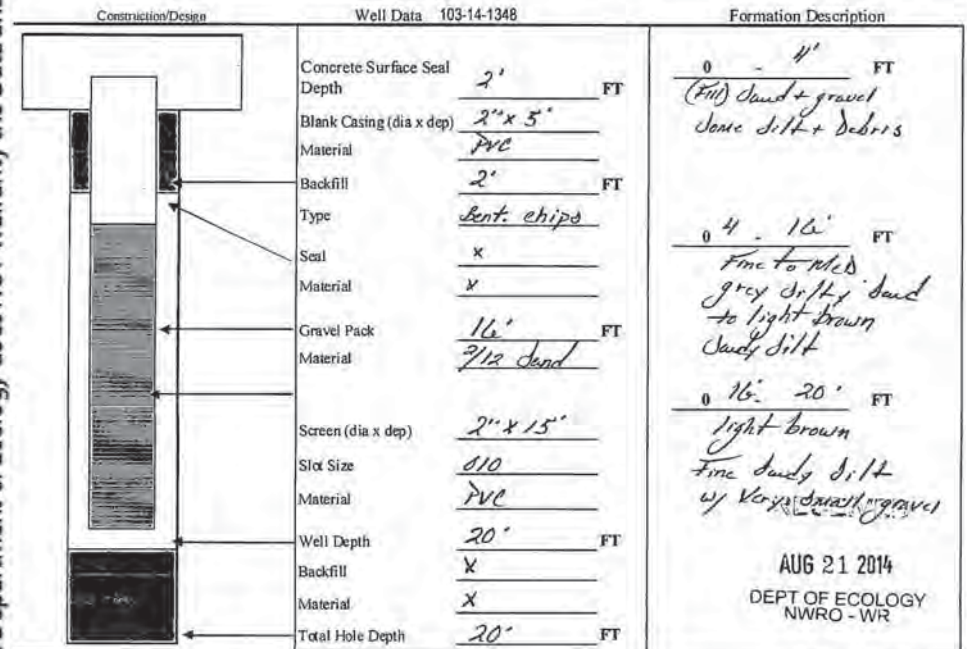 Construction/Design
Well Data 103-14-1348
Formation Description
Concrete Surface Seal
Depth 2' FT
Blank Casing (dia x dep) 2" x 5'
Material PVC
Backfill 2' FT
Type Bent. chips
Seal x
Material x
Gravel Pack 16' FT
Material 2/12 Sand
Screen (dia x dep) 2" x 15'
Slot Size 010
Material PVC
Well Depth 20' FT
Backfill x
Material x
Total Hole Depth 20' FT
0 - 4' FT
(Fill) Sand + gravel
Some Silt + Debris
0 4 - 16' FT
Fine to Med
grey Silty Sand
to light brown
Sandy Silt
0 16' - 20' FT
light brown
Fine Sandy Silt
w/ Very Small gravel
AUG 21 2014
DEPT OF ECOLOGY
NWRO - WR